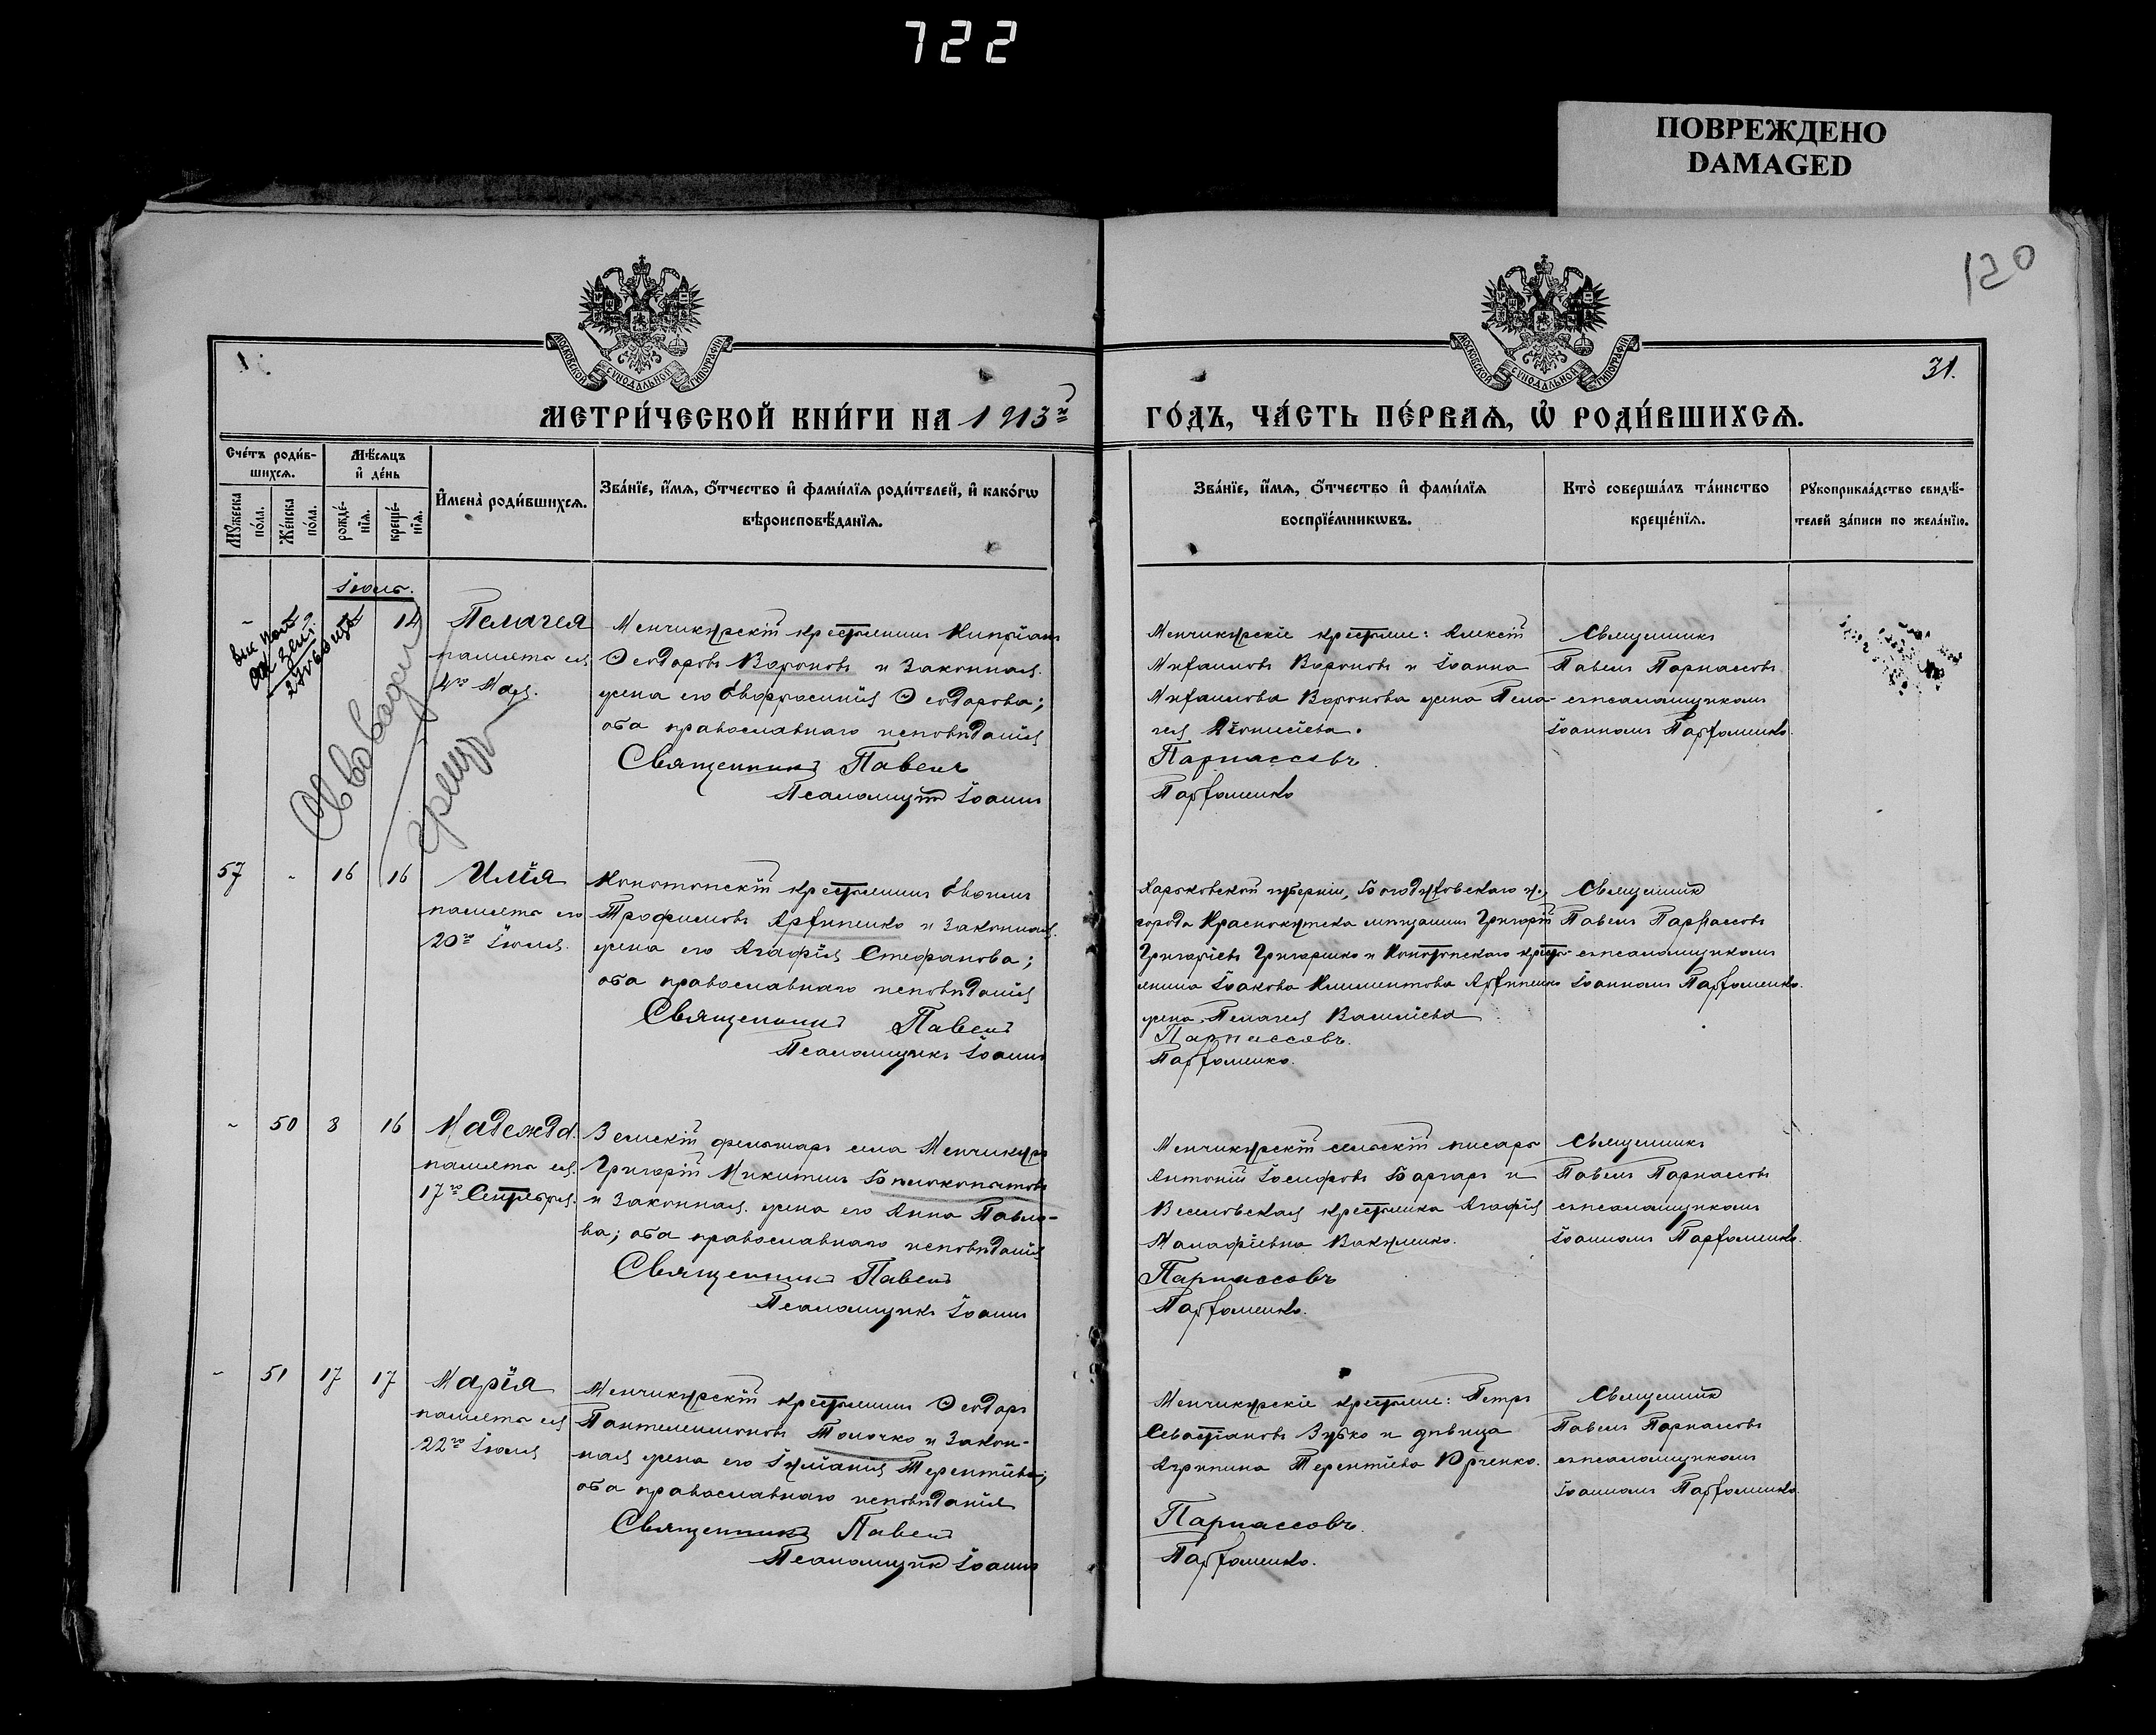 722
ПОВРЕЖДЕНО
DAMAGED
120
МОСКОВСКОЙ СѴНОДАЛЬНОЙ ТИПОГРАФІИ
МОСКОВСКОЙ СѴНОДАЛЬНОЙ ТИПОГРАФІИ
31.
МЕТРИ́ЧЕСКОЙ КНИ́ГИ НА 1913й
ГО́ДЪ, ЧА́СТЬ ПЕ́РВАѦ, Ѡ҆ РОДИ́ВШИХСѦ.
Сче́тъ роди́в-
шихсѧ.
Мѣ́сѧцъ
и҆ де́нь
Мꙋ́жеска по́ла.
Же́нска по́ла.
рожде́-
нїѧ.
креще́-
нїѧ.
И҆мена̀ роди́вшихсѧ.
Зва́нїе, и҆́мѧ, ѻ҆́тчество и҆ фами́лїѧ роди́телей, и҆ како́гѡ
вѣроисповѣ́данїѧ.
Зва́нїе, и҆́мѧ, ѻ҆́тчество и҆ фами́лїѧ
воспрїе́мникѡвъ.
Кто̀ соверша́лъ та́инство
креще́нїѧ.
Рꙋкоприкла́дство свидѣ́-
телей за́писи по жела́нїю.
Іюль.
14 Пелагея
память ея
4го Мая.
Менчикурскій крестьянинъ Кипріанъ
Ѳеодоровъ Вороновъ и законная
жена его Евфросинія Ѳеодорова;
оба православнаго исповѣданія
Священникъ Павелъ
Псаломщикъ Іоаннъ
Менчикурскіе крестьяне: Алексѣй
Михаиловъ Вороновъ и Іоанна
Михаилова Воронова жена Пела-
гея Діонисіева.
Парнассовъ.
Парфоменко
Священникъ
Павелъ Парнассовъ
съ псаломщикомъ
Іоанномъ Парфоменко.
57 - 16 16 Илія
память его
20го Іюля.
Конотопскій крестьянинъ
Трофимовъ Архипенко и законная
жена его Агафія Стефанова;
оба православнаго исповѣданія
Священникъ Павелъ
Псаломщикъ Іоаннъ
Харьковской губерніи, Богодуховскаго у.,
города Краснокутска мѣщанинъ Григорій
Григоріевъ Григоршко и Конотопскаго кресть-
янина Іоакова Климентова Архипенко
жена Пелагея Васильева
Парнассовъ.
Парфоменко.
Священникъ
Павелъ Парнассовъ
съ псаломщикомъ
Іоанномъ Парфоменко.
- 50 8 16 Надежда.
память ея
17го Сентября.
Земскій фельдшеръ села Менчикуръ
Григорій Никитинъ Бѣлокопытовъ
и законная жена его Анна Павло-
ва; оба православнаго исповѣданія
Священникъ Павелъ
Псаломщикъ Іоаннъ
Менчикурскій сельскій писарь
Антоній Іосифовъ и
Веселовская крестьянка Агафія
Малафіевна Вакуленко.
Парнассовъ
Парфоменко.
Священникъ
Павелъ Парнассовъ
съ псаломщикомъ
Іоанномъ Парфоменко.
- 51 17 17 Марія
память ея
22го Іюля
Менчикурскій крестьянинъ Ѳеодоръ
Пантелеимоновъ Толочко и закон-
ная жена его Іуліанія Терентіева;
оба православнаго исповѣданія
Священникъ Павелъ
Псаломщикъ Іоаннъ
Менчикурскіе крестьяне: Петръ
Севастіановъ Зубко и дѣвица
Агрипина Терентіева Юрченко.
Парнассовъ.
Парфоменко.
Священникъ
Павелъ Парнассовъ
съ псаломщикомъ
Іоанномъ Парфоменко.